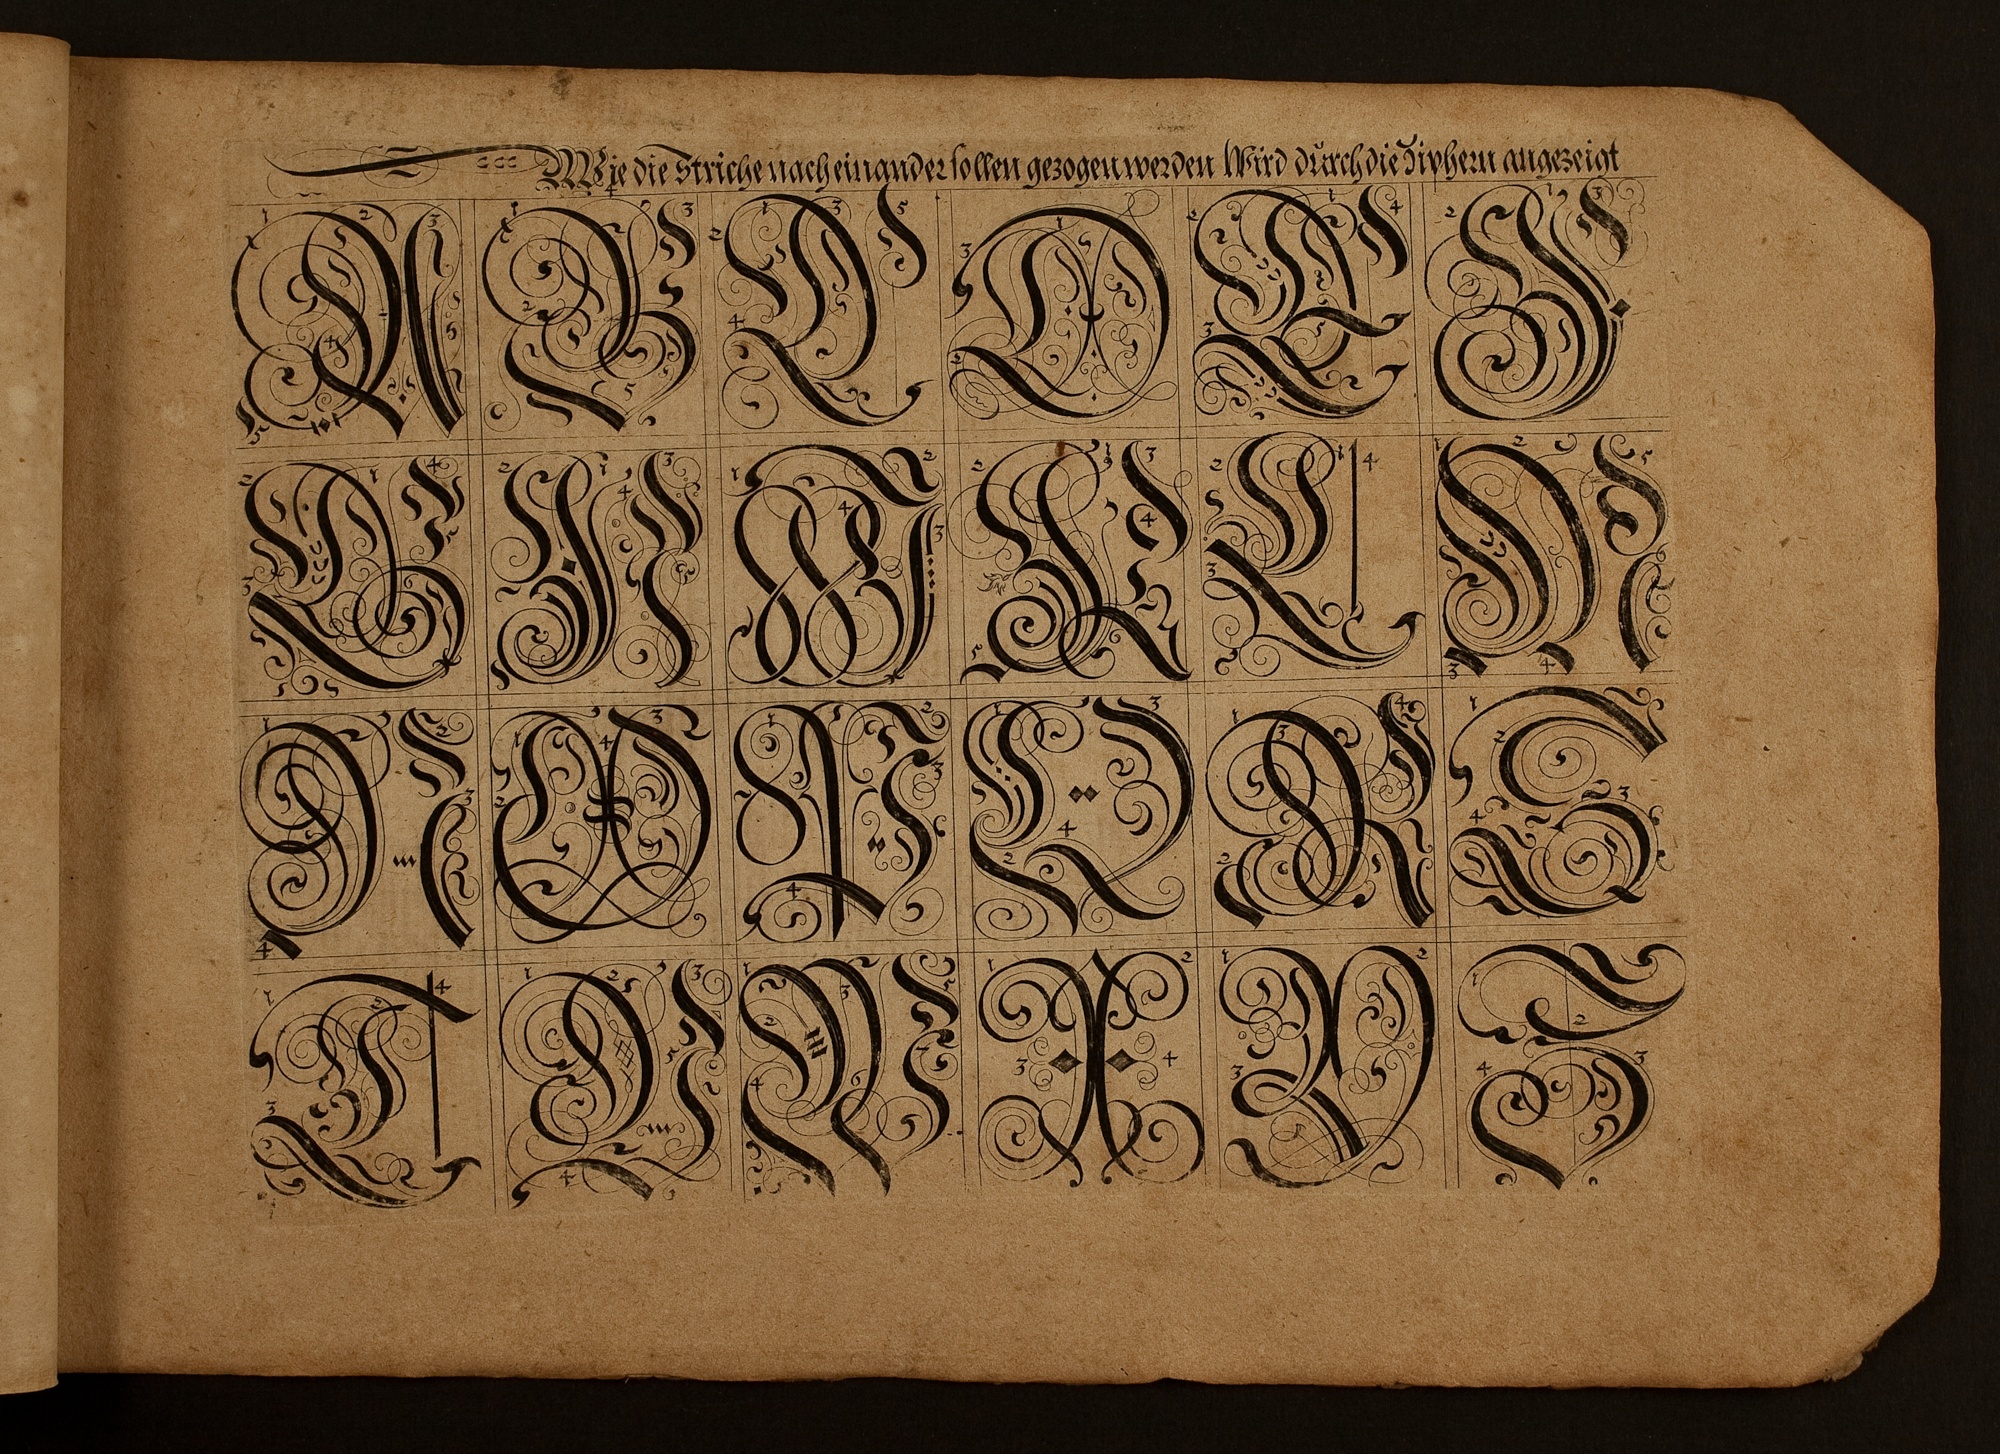 Wie die Striche nach einander sollen gezogen werden Wird durch die Ziphern angezeigt
A B C D E F
G H I K L M
N O P Q R S
T V W X Y Z